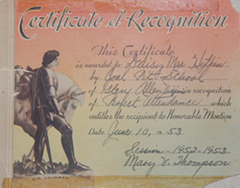 Certificate of Recognition
This Certificate
is awarded to Daisy Mae
by Coal Pit School
of Glen Allen Virginia in recognition
of Perfect Attendance which
entitles the recipient to Honorable Mention
Date June 10, 53
Session - 1952-1953
Mary V. Thompson